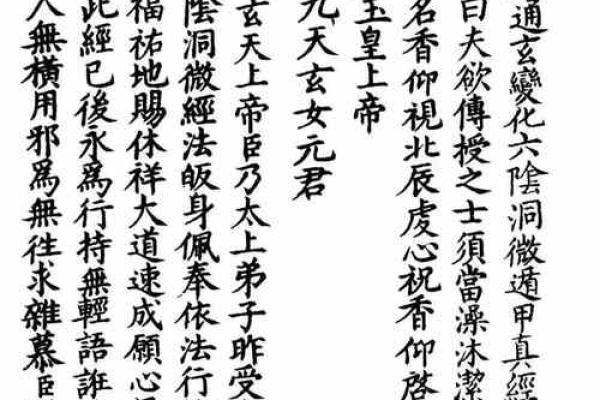 通玄變化六陰洞微遁甲真經
曰夫欲傳授之士須當澡沐潔
名香仰視北辰虔心祝香仰啓
玉皇上帝
九天玄女元君
玄天上帝臣乃太上弟子昨受
陰洞微經法皈身佩奉依法行
福祐地賜休祥大道速成願心
此經已後永爲行持無輕語誑
人無横用邪爲無徃求雜慕臣